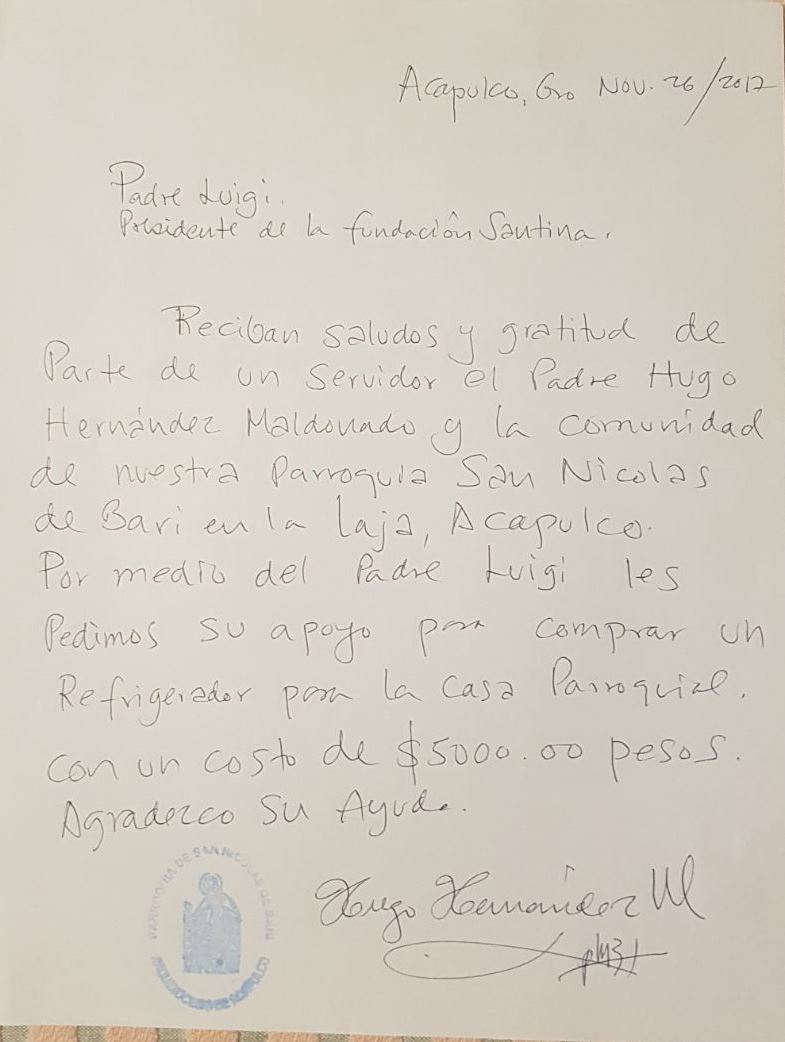 Acapulco, Gro Nov. 26/2017
Padre Luigi.
Presidente de la fundación Santina.
Reciban saludos y gratitud de
Parte de un servidor el Padre Hugo
Hernández Maldonado y la comunidad
de nuestra Parroquia San Nicolas
de Bari en la Laja, Acapulco.
Por medio del Padre Luigi les
Pedimos su apoyo para comprar un
Refrigerador para la casa Parroquial.
con un costo de $5000.00 pesos.
Agradezco su Ayuda.
Hugo Hernández M
PARROQUIA DE SAN NICOLAS DE BARI
ARQUIDIOCESIS DE ACAPULCO